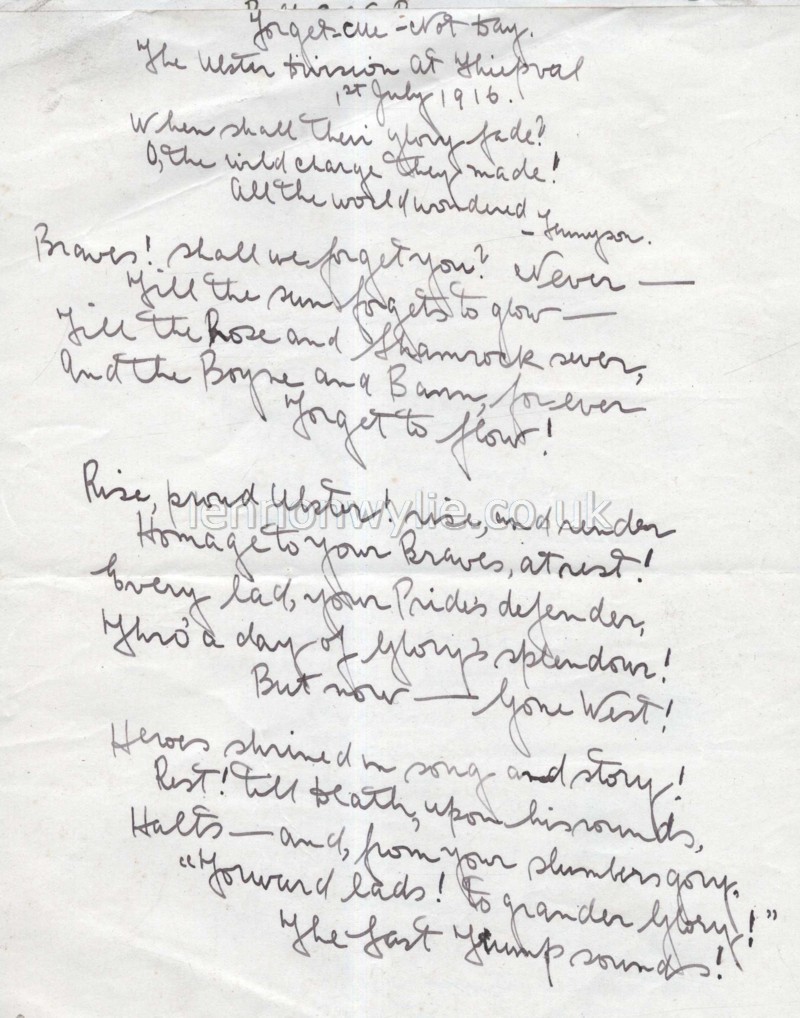 Forget-Me-Not Day.
The Ulster Division at Thiepval
1st July 1916.
When shall their glory fade?
O, the wild charge they made!
All the world wondered
- Tennyson.
Braves! shall we forget you? Never —
Till the sun forgets to glow —
Till the Rose and Shamrock sever,
And the Boyne and Bann, for ever
Forget to flow!
Rise, proud Ulster! rise, and render
lennonwylie.co.uk
Homage to your Braves, at rest!
Every lad, your Pride's defender,
Thro' a day of Glory's splendour!
But now — Gone West!
Heroes shrined in song and story!
Rest! till Death, upon his rounds,
Halts — and, from your slumbers gory,
"Forward lads! to grander Glory!"
The Last Trump sounds!